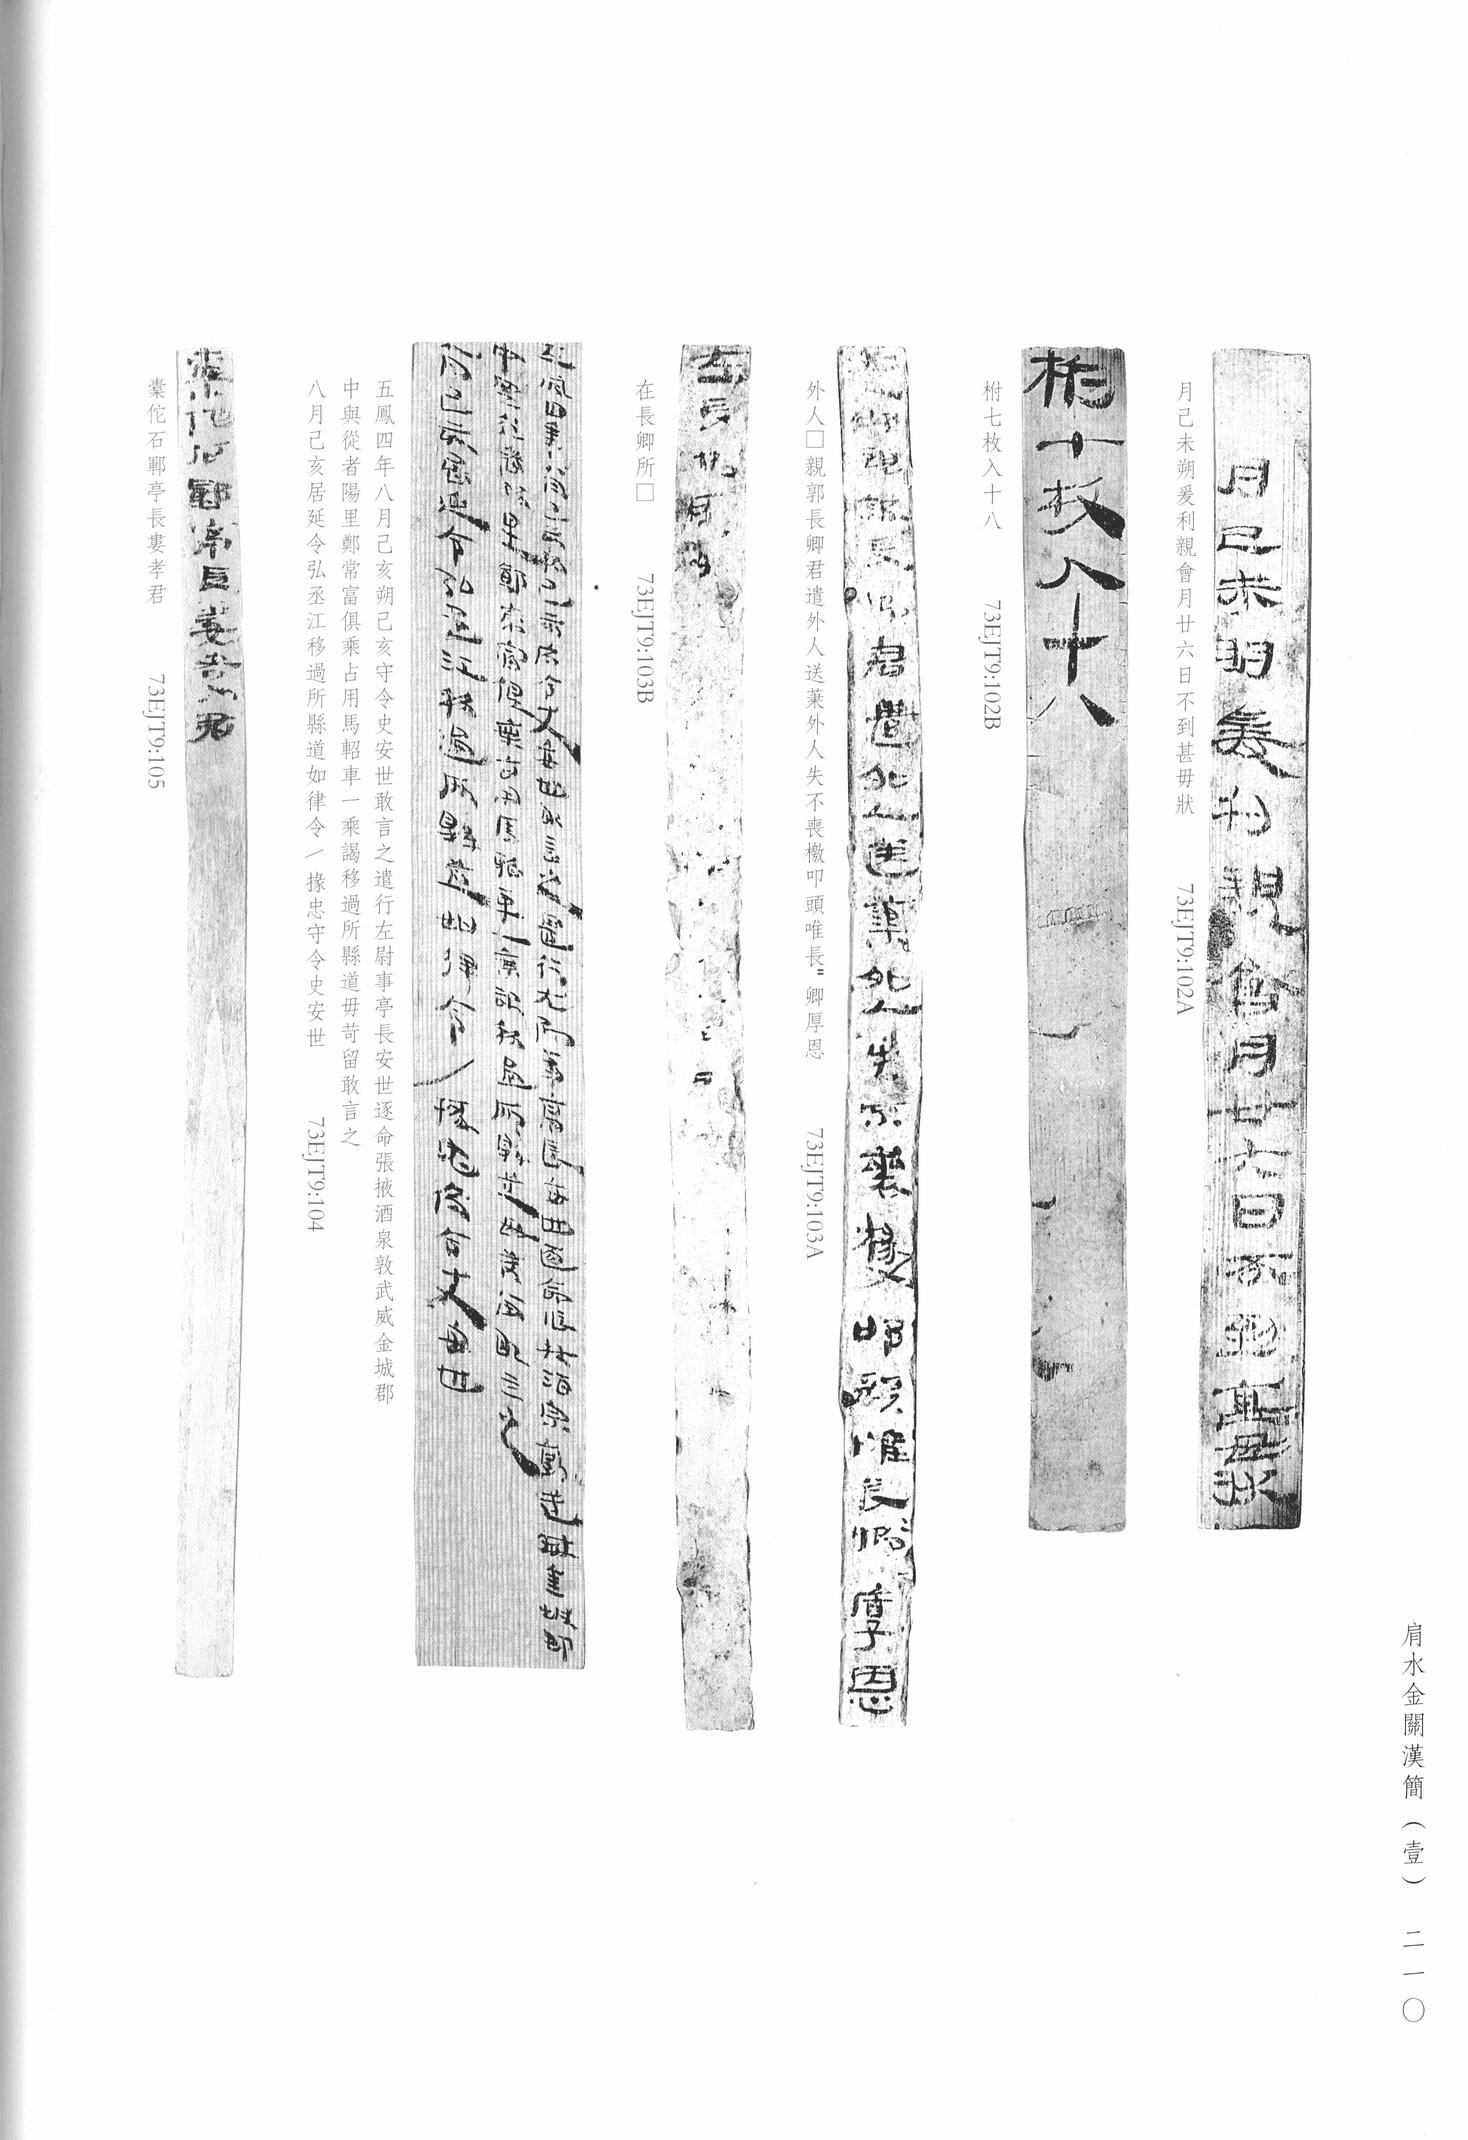 肩水金關漢簡（壹）　二一〇
月己未朔爰利親會月廿六日不到甚毋狀　73EJT9:102A
柎七枚入十八　73EJT9:102B
外人□親郭長卿君遣外人送蒹外人失不喪檄叩頭唯長〓卿厚恩　73EJT9:103A
在長卿所□　73EJT9:103B
五鳳四年八月己亥朔己亥守令史安世敢言之遣行左尉事亭長安世逐命張掖酒泉敦武威金城郡
中與從者陽里鄭常富俱乘占用馬軺車一乘謁移過所縣道毋苛留敢言之
八月己亥居延令弘丞江移過所縣道如律令／掾忠守令史安世　73EJT9:104
橐佗石鄆亭長婁孝君　73EJT9:105